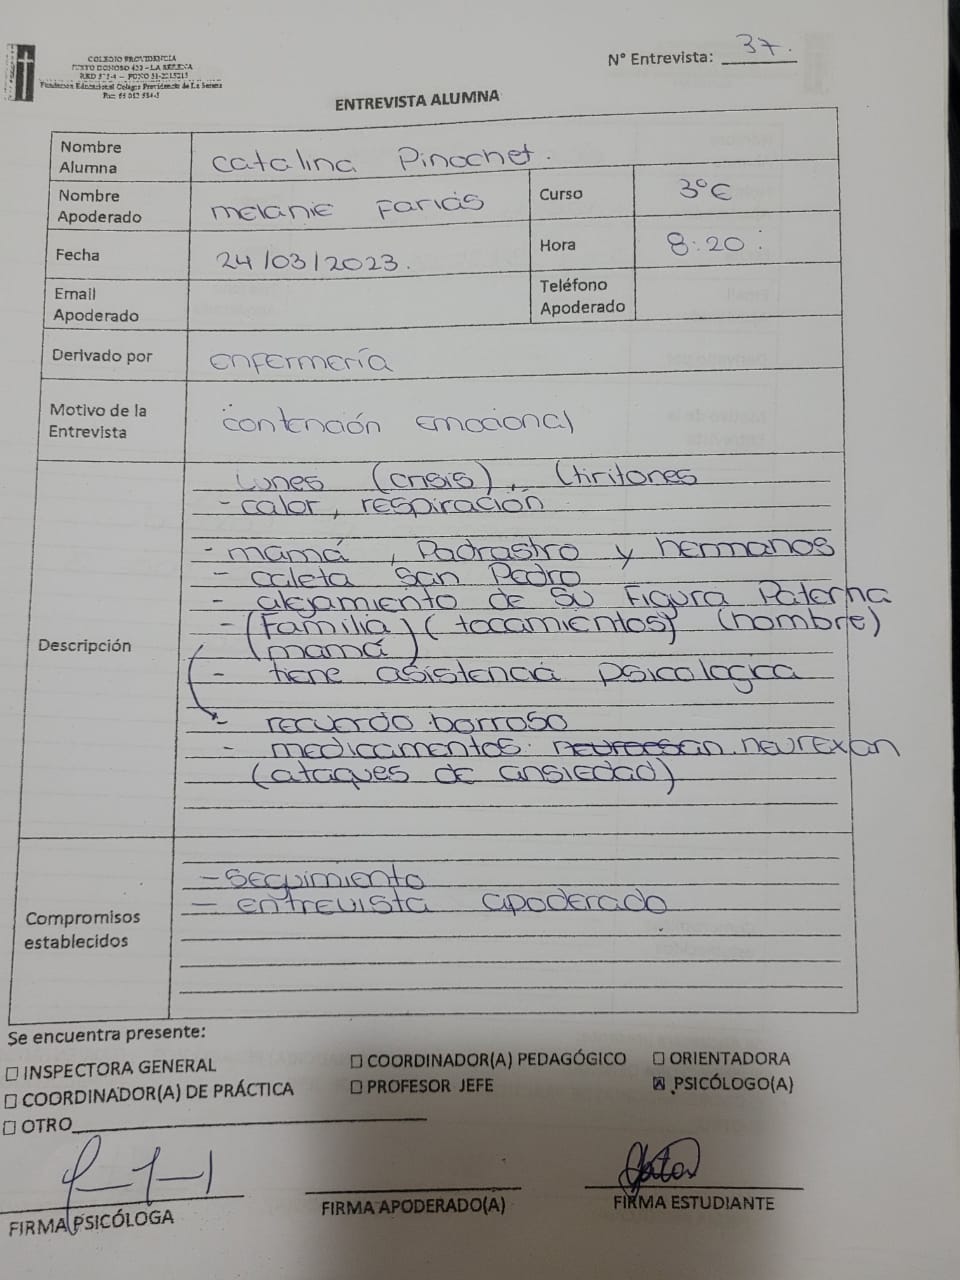 COLEGIO PROVIDENCIA
N° Entrevista: 37.
ENTREVISTA ALUMNA
Nombre Alumna Catalina Pinochet.
Nombre Apoderado Melanie Farias Curso 3°E
Fecha 24/03/2023. Hora 8:20.
Email Apoderado Teléfono Apoderado
Derivado por enfermería
Motivo de la Entrevista contención emocional
Descripción
Lunes (crisis), (tiritones
- calor, respiración
- mamá, Padrastro y hermanos
- caleta San Pedro
- alejamiento de su Figura Paterna
- (Familia) (tocamientos) (hombre)
(mamá)
- tiene asistencia psicologica
- recuerdo borroso
- medicamentos: neurexan
(ataques de ansiedad)
Compromisos establecidos
- seguimiento
- entrevista apoderado
Se encuentra presente:
☐ INSPECTORA GENERAL ☐ COORDINADOR(A) PEDAGÓGICO ☐ ORIENTADORA
☐ COORDINADOR(A) DE PRÁCTICA ☐ PROFESOR JEFE ☒ PSICÓLOGO(A)
☐ OTRO
FIRMA PSICÓLOGA FIRMA APODERADO(A) FIRMA ESTUDIANTE